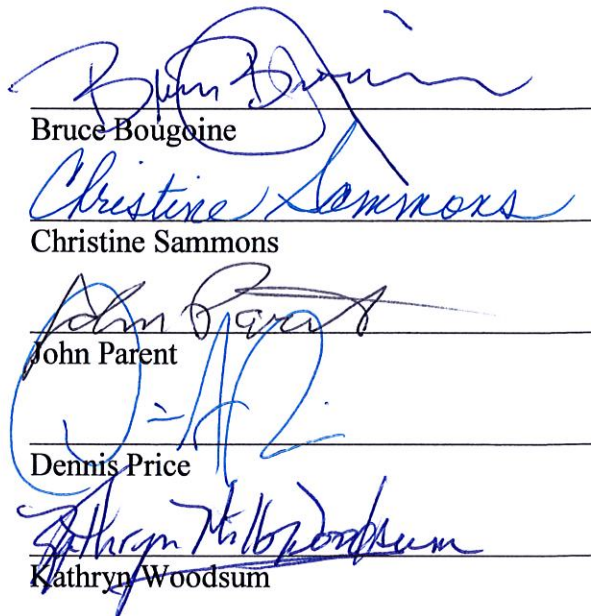 Bruce Bougoine
Christine Sammons
Christine Sammons
John Parent
John Parent
Dennis Price
Kathryn Woodsum
Kathryn Woodsum